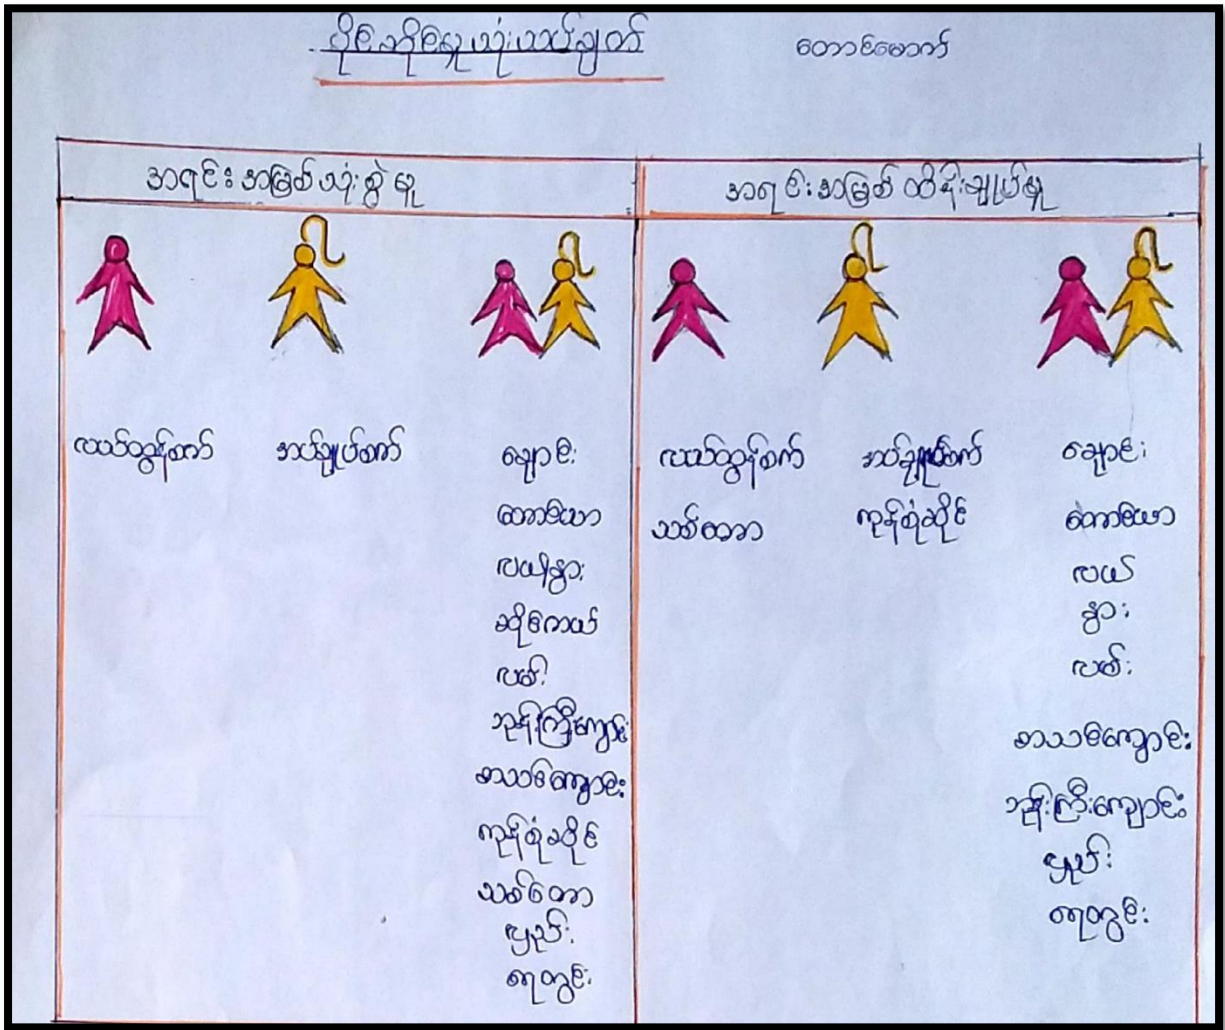 ပိုင်ဆိုင်မှု သုံးသပ်ချက်
တောင်မောက်
အရင်းအမြစ် သုံးစွဲမှု
အရင်းအမြစ် ထိန်းချုပ်မှု
လယ်ထွန်စက် အပ်ချုပ်စက် ချောင်း
တောင်ယာ
လယ်၊နွား
ဆိုင်ကယ်
လမ်း
ဘုန်းကြီးကျောင်း
စာသင်ကျောင်း
ကုန်စုံဆိုင်
သစ်တော
လှည်း
ရေတွင်း
လယ်ထွန်စက် အပ်ချုပ်စက် ချောင်း
သစ်တော ကုန်စုံဆိုင် တောင်ယာ
လယ်
နွား
လမ်း
စာသင်ကျောင်း
ဘုန်းကြီးကျောင်း
လှည်း
ရေတွင်း